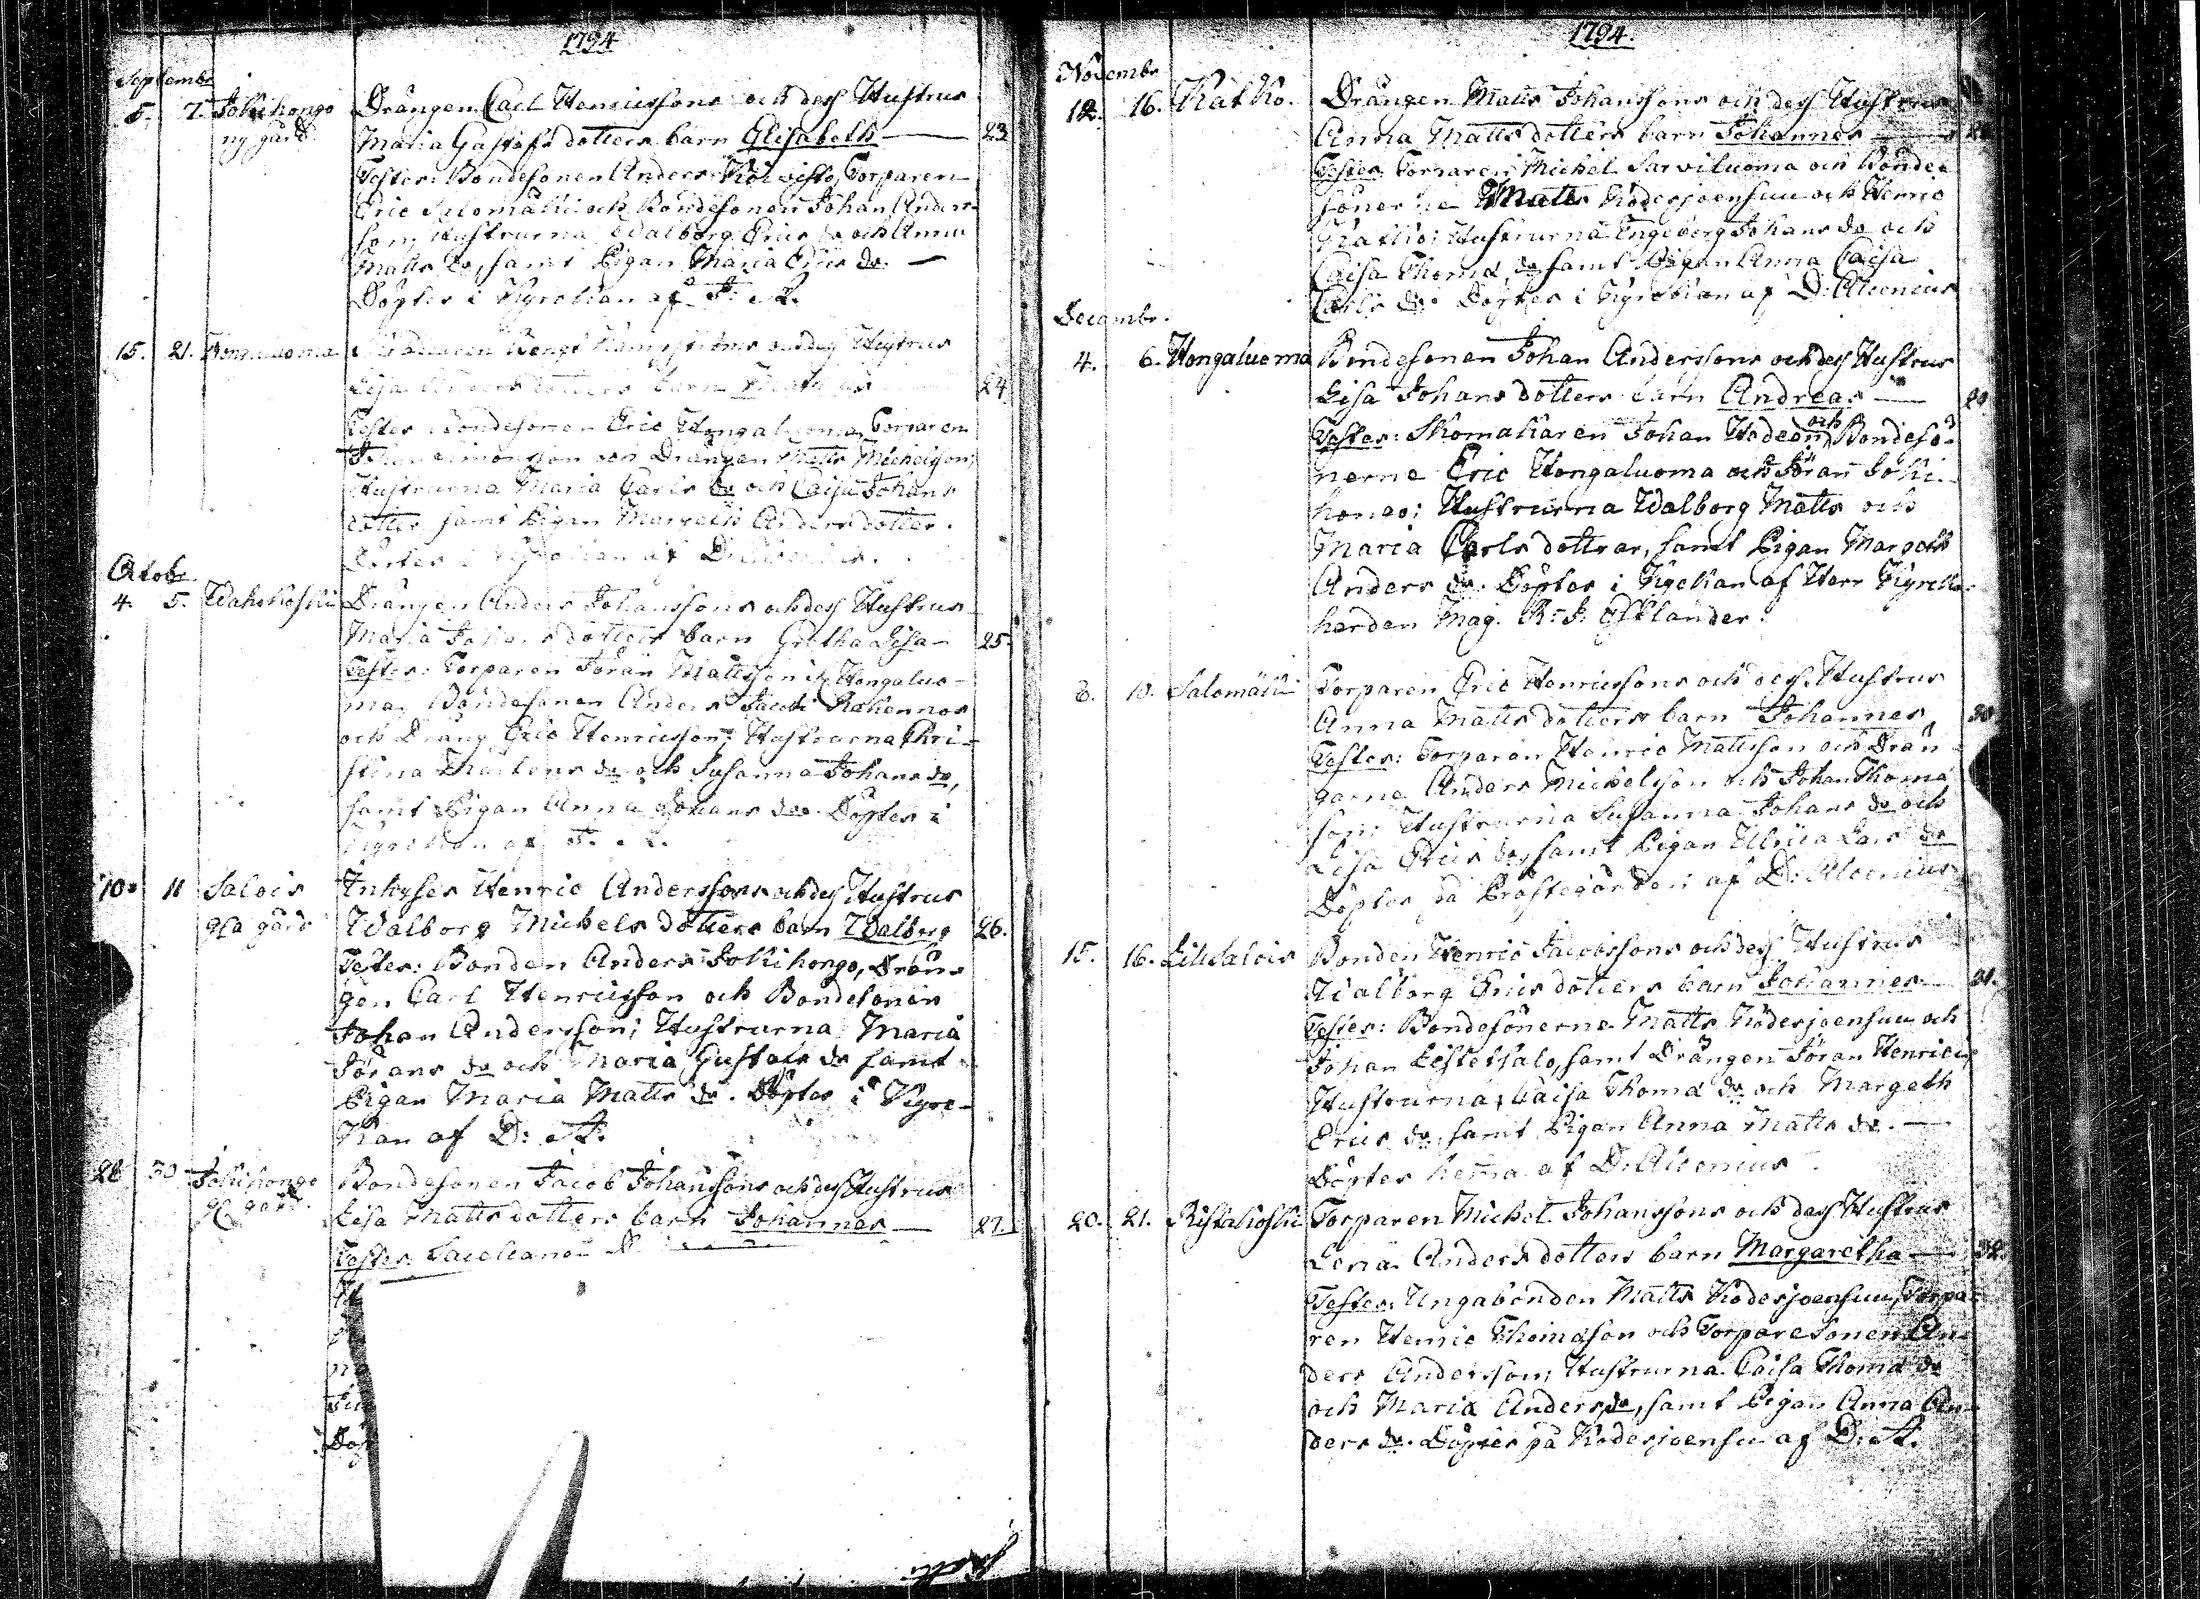 1794
Septembr
5. 7. Jokihongo Drängen Carl Henricssons och dess Hustrus
ny gård. Maria Gustafs dotters barn Elisabeth — 23
Testes: Bondesonen Anders Koivisto, Torparen
Eric Salomäki och Bondesonen Johan Anders-
son, Hustrurna Walborg Erics do och Anna
Matts do, samt Pigan Maria Erics do. —
Döptes i Kyrckian af J: A.
15. 21. Hustrus
Lisa Anders dotters barn 24
Testes Bondesonen Eric Hongaluoma, Torparen
Johan Simonsson och Drängen Matts Michelsson;
Hustrurna Maria Carls do och Caisa Johans
dotter, samt Pigan Margeth Anders dotter.
Döptes i Kyrckian af
Octobr
4. 5. Wahakoski Drängen Anders Johanssons och dess Hustrus
Maria Johans dotters barn Gretha Lisa — 25.
Testes: Torparen Jöran Mattsson i Hongaluo-
ma, Bondesonen Anders Jacobs
och Dräng Eric Henricsson; Hustrurna Chri-
stina Mårtens do och Susanna Johans do,
samt Pigan Anna Johans do. Döptes i
Kyrckian af J. A.
10. 11 Salois Inhyses Henric Anderssons och dess Hustrus
gla gård Walborg Michels dotters barn Walborg 26.
Testes: Bonden Anders Jokihongo, Drän-
gen Carl Henricsson och Bondesonen
Johan Andersson; Hustrurna Maria
Jörans do och Maria Gustafs do samt
Pigan Maria Matts do. Döptes i Kyrc-
kan af D: A.
28 30 Jokihongo Bondesonen Jacob Johanssons och dess Hustrus
gl gård. Lisa Matts dotters barn Johannes — 27.
Testes.
Döp
1794.
Novembr
12. 16. Katko. Drängen Matts Johanssons och dess Hustrus
Anna Matts dotters barn Johannes — 28
Testes: Torparen Michel Sarviluoma och Bonde-
sönerne Matts Kodesjoensuu och Henric
Katko; Hustrurna Engeborg Johans do och
Caisa Thoma do samt Pigan Anna Caisa
Carls do. Döptes i Kyrckian af D: Alcenius
Decembr.
4. 6. Hongaluoma Bondesonen Johan Anderssons och dess Hustrus
Lisa Johans dotters barn Andreas — 29
Testes: Skomakaren Johan Hedeon, och Bondesö-
nerne Eric Hongaluoma och Jöran Joki-
hongo; Hustrurna Walborg Matts och
Maria Carls dottrar, samt Pigan Margeth
Anders do. Döptes i Kyrckian af Herr Kyrcko-
herden Mag. R: J:
8. 10. Salomäki Torparen Eric Henricssons och dess Hustrus
Anna Matts dotters barn Johannes 30
Testes: Torparen Henric Mattsson och Drän-
garne Anders Michelsson och Johan Thoma
son; Hustrurna Susanna Johans do och
Lisa Erics do, samt Pigan Ullrica Lars do
Döptes på Prästegården af D: Alcenius
15. 16. Lill Salois Bonden Henric Jacobssons och dess Hustrus
Walborg Erics dotters barn Johannes — 31.
Testes: Bondesönerne Matts Kodesjoensuu och
Johan Leistetsalo, samt Drängen Jöran Henrics;
Hustrurna Caisa Thoma do och Margeth
Erics do, samt Pigan Anna Matts do. —
Döptes hema af D: Alcenius
20. 21. Ristakoski Torparen Michel Johanssons och dess Hustrus
Lena Anders dotters barn Margaretha — 32.
Testes: Ungabonden Matts Kodesjoensuu, Torpa-
ren Henric Thomasson och Torparesonen An-
ders Andersson; Hustrurna Caisa Thoma do
och Maria Anders do, samt Pigan Anna An-
ders do. Döptes på Kodesjoensu af D: A.